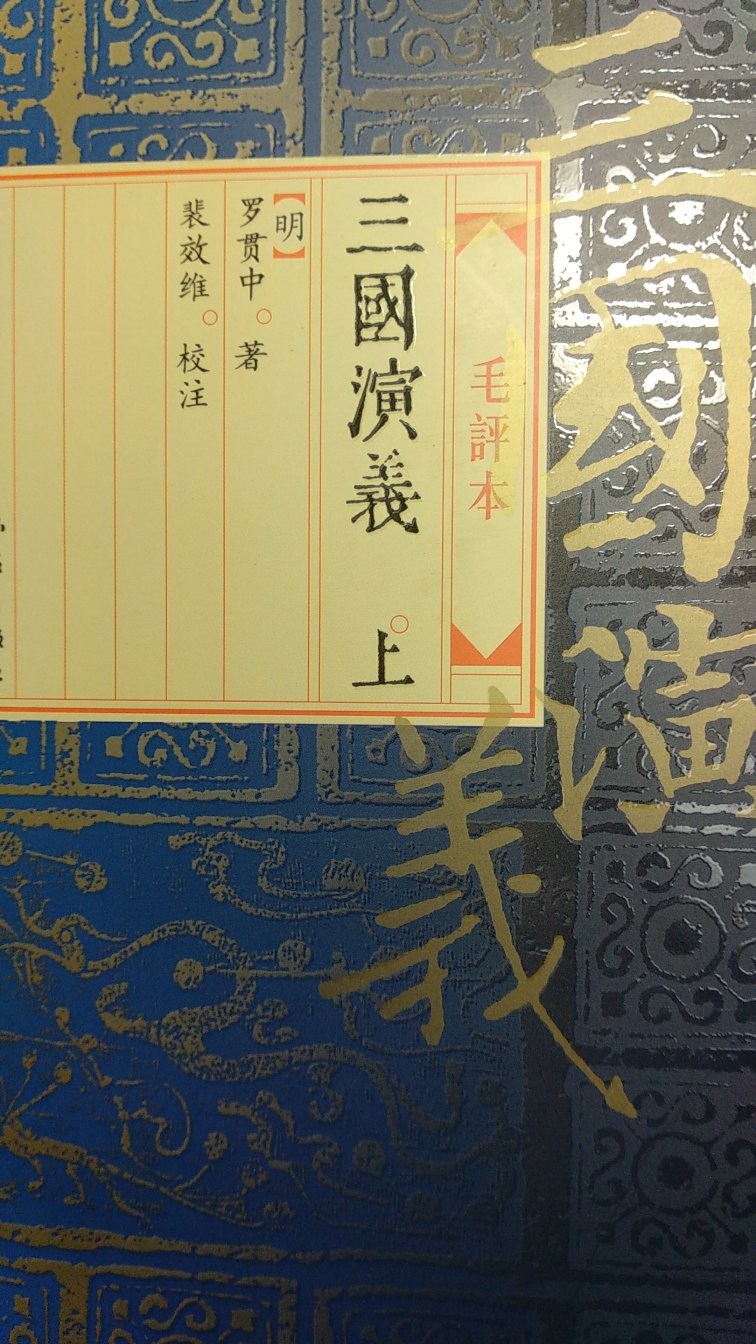 三国演義
毛評本
三國演義 上
【明】
罗贯中 著
裴效维 校注